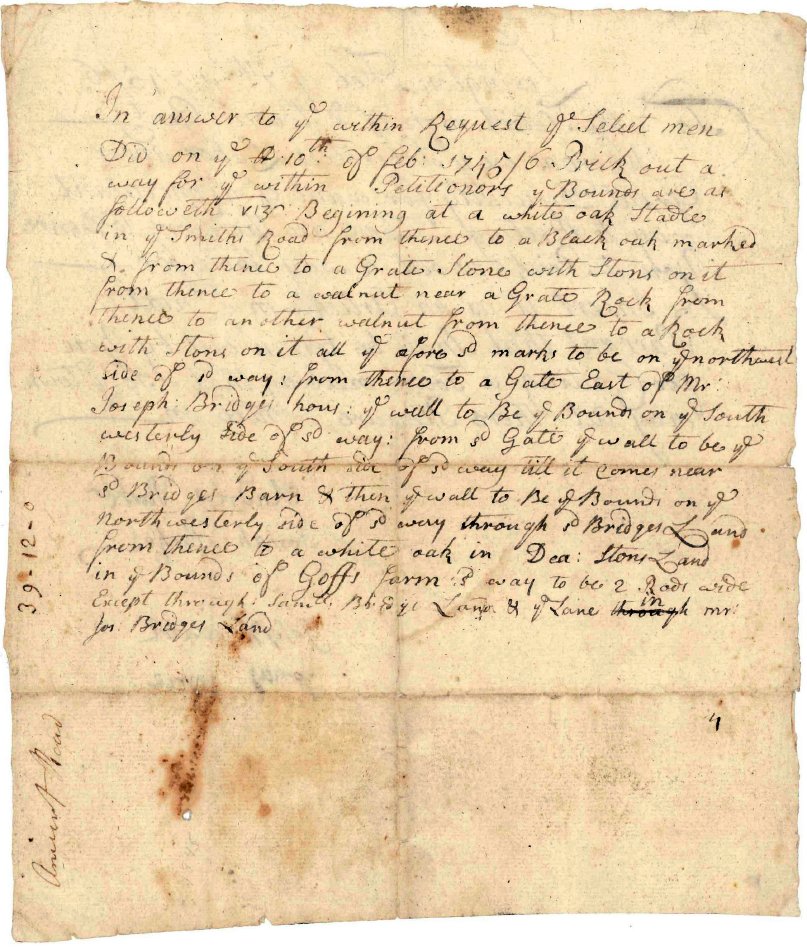 In answer to yͤ within Request yͤ Select men
Did on yͤ 10th: of feb: 1745/6 Prick out a
way for yͤ within Petitionors yͤ Bounds are as
followeth viz Begining at a white oak Stadle
in yͤ Smiths Road from thence to a Black oak marked
& from thence to a Grate Stone with Stons on it
from thence to a walnut near a Grate Rock from
thence to another walnut from thence to a Rock
with Stons on it all yͤ afore sd marks to be on yͤ northwest
side of sd way: from thence to a Gate East of Mr:
Joseph: Bridges hous: yͤ wall to Be yͤ Bounds on yͤ South
westerly side of sd way: from sd Gate yͤ wall to be yͤ
Bounds on yͤ South side of sd way till it comes near
sd Bridges Barn & then yͤ wall to Be yͤ Bounds on yͤ
Northwesterly side of sd way through sd Bridges Land
from thence to a white oak in Dea: Stons Land
in yͤ Bounds of Goffs farm: sd way to be 2 Rods wide
Except through: Samll: Bridges Land & yͤ Lane through in mr:
Jos: Bridges Land
39-12-0
Road
4